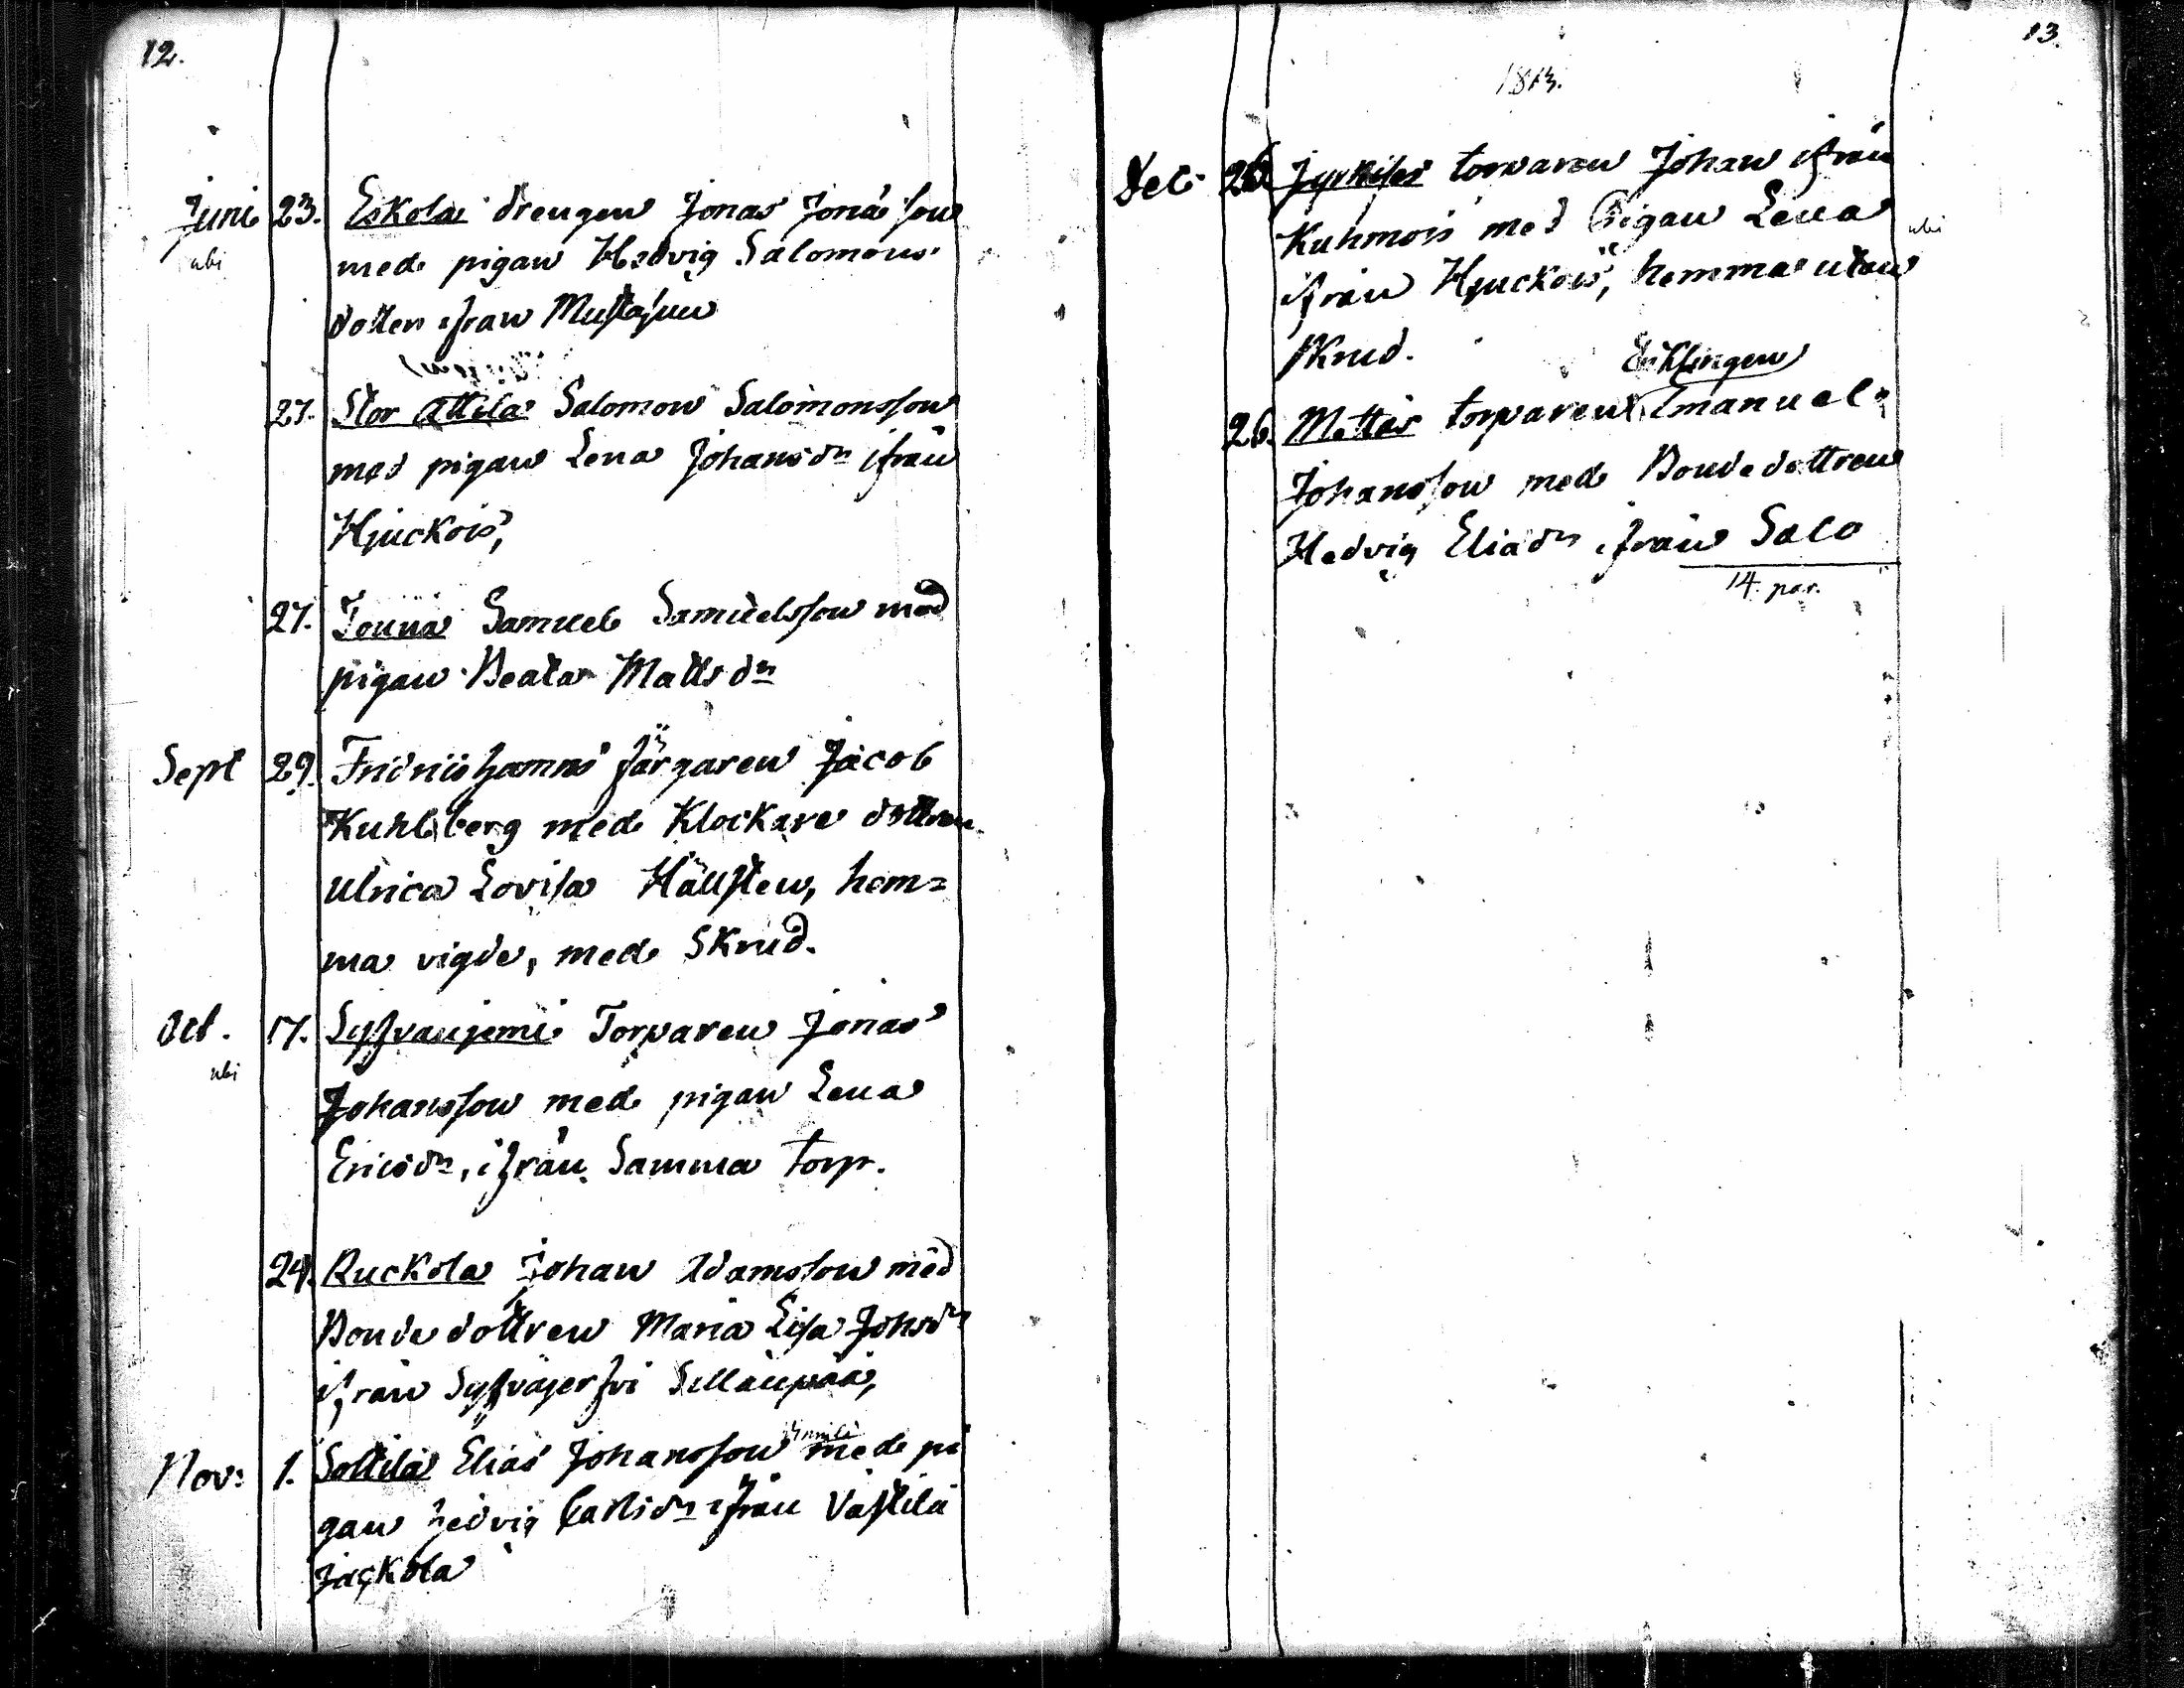 12.
Juni 23. Eskola drengen Jonas Jonasson
ubi
med pigan Hedvig Salomons
dotter ifrån Mustajuu
27. Stor Attila Salomon Salomonsson
med pigan Lena Johansdr ifrån
Hjuckois,
27. Jouna Samuel Samuelsson med
pigan Beata Mattsdr
Sept 29. Fridrichshamns färgaren Jacob
Kuhlberg med Klockare dottren
Ulrica Lovisa Hällsten, hem=
ma vigde, med Skrud.
Oct. 17. Syfvänjemi Torparen Jonas
ubi
Johansson med pigan Lena
Ericsdr, ifrån Samma torp.
24. Ruckola Johan Adamsson med
Bonde dottren Maria Lisa Johsdr
ifrån Syfväjerfvi Sillänpää,
Nov: 1. Sottila Elias Johansson med pi
gan Hedvig Carlsdr ifrån Västilä
Jackola
13.
1813.
Dec 26 Jyrkiles torparen Johan ifrån
Kuhmois med Pigan Lena
ubi
ifrån Hjuckois, hemma utan
skrud.
Enklingen
26. Mattas torparen Emanuel
Johansson med Bondedottren
Hedvig Eliadr ifrån Salo
14. par.